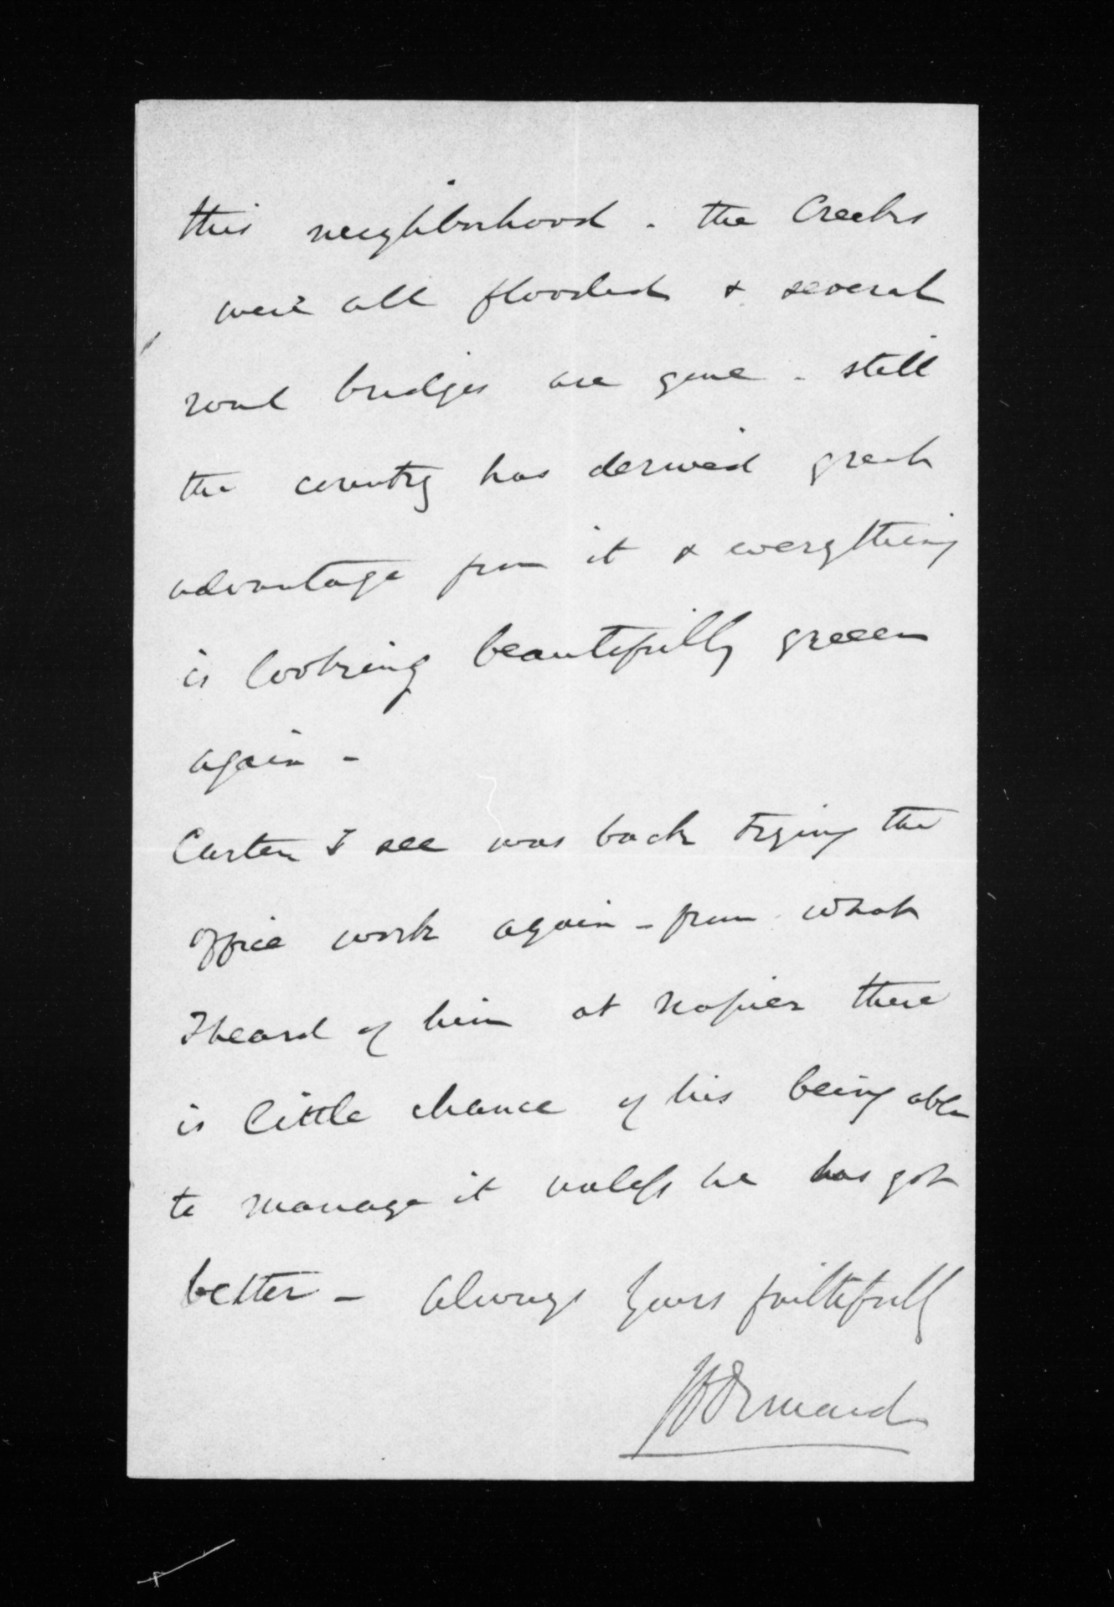 this neighborhood. the Creeks
were all flooded & several
road bridges are gone - still
the country has derived great
advantage from it & everything
is looking beautifully green
again -
I see was back trying the
office work again - from what
I heard of him at Napier there
is little chance of his being able
to manage it unless he has got
better - always yours faithfully
JD Ormond